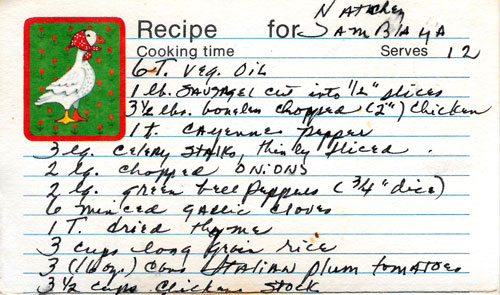 Recipe for Natchez
Jambalaya
Cooking time Serves 12
6 T. Veg. Oil
1 lb. SAUSAGE cut into 1/2" slices
3 1/2 lbs. boneless chopped (2") chicken
1 t. Cayenne pepper
3 lg. celery STALKS, thinly sliced.
2 lg. chopped ONIONS
2 lg. green bell peppers (3/4" dice)
6 minced garlic cloves
1 T. dried thyme
3 cups long grain rice
3 (16 oz.) cans ITALIAN plum tomatoes
3 1/2 cups chicken stock